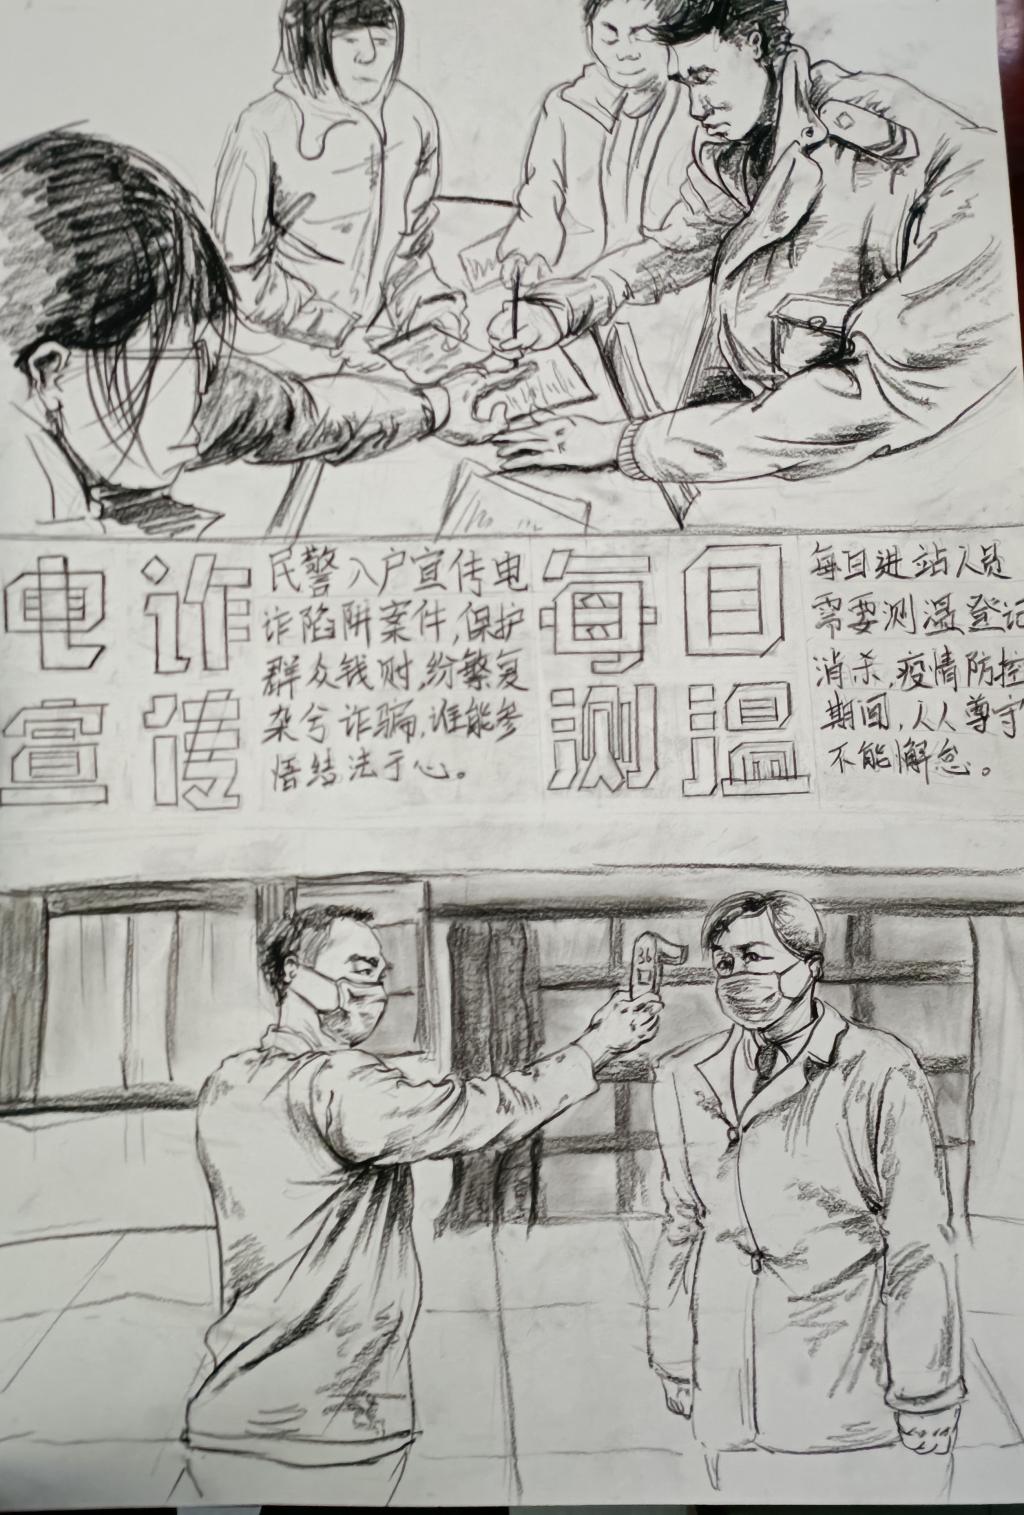 电诈
宣传
民警入户宣传电
诈陷阱案件,保护
群众钱财,纷繁复
杂兮诈骗,谁能参
悟结法于心。
每日
测温
每日进站人员
需要测温登记
消杀,疫情防控
期间,人人尊守
不能懈怠。
36